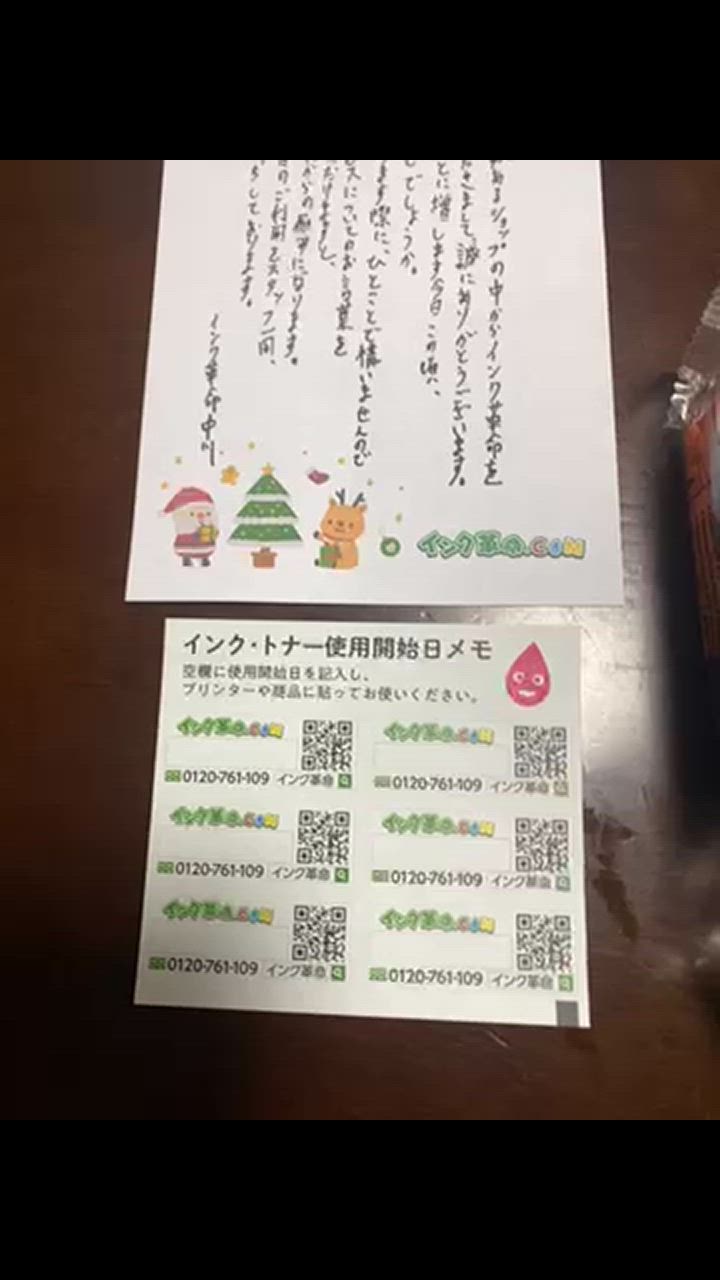 あるショップの中からインク革命を
きまして、誠にありがとうございます。
とに増します今日この頃、
でしょうか。
ます際に、ひとことで構いませんので
スについてのお言葉を
だけますと、
からの励みになります。
のご利用をスタッフ一同、
しております。
インク革命 中川
インク革命.COM
インク・トナー使用開始日メモ
空欄に使用開始日を記入し、
プリンターや商品に貼ってお使いください。
インク革命.COM
0120-761-109 インク革命
インク革命.COM
0120-761-109 インク革命
インク革命.COM
0120-761-109 インク革命
インク革命.COM
0120-761-109 インク革命
インク革命.COM
0120-761-109 インク革命
インク革命.COM
0120-761-109 インク革命